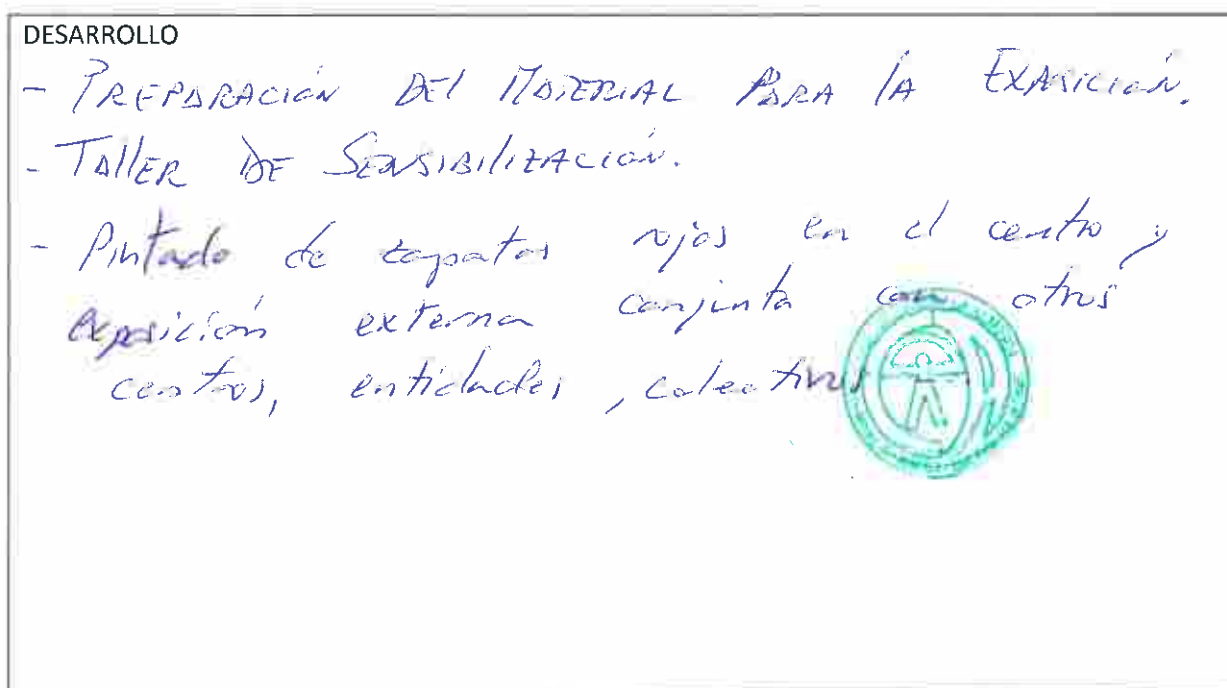 DESARROLLO
- PREPARACIÓN DEl MATERIAL PARA lA EXPOSICIÓN.
- TAllER DE SENSIBIlIZACIÓN.
- Pintado de zapatos rojos en el centro y
exposición externa conjunta con otros
centros, entidades, colectivos